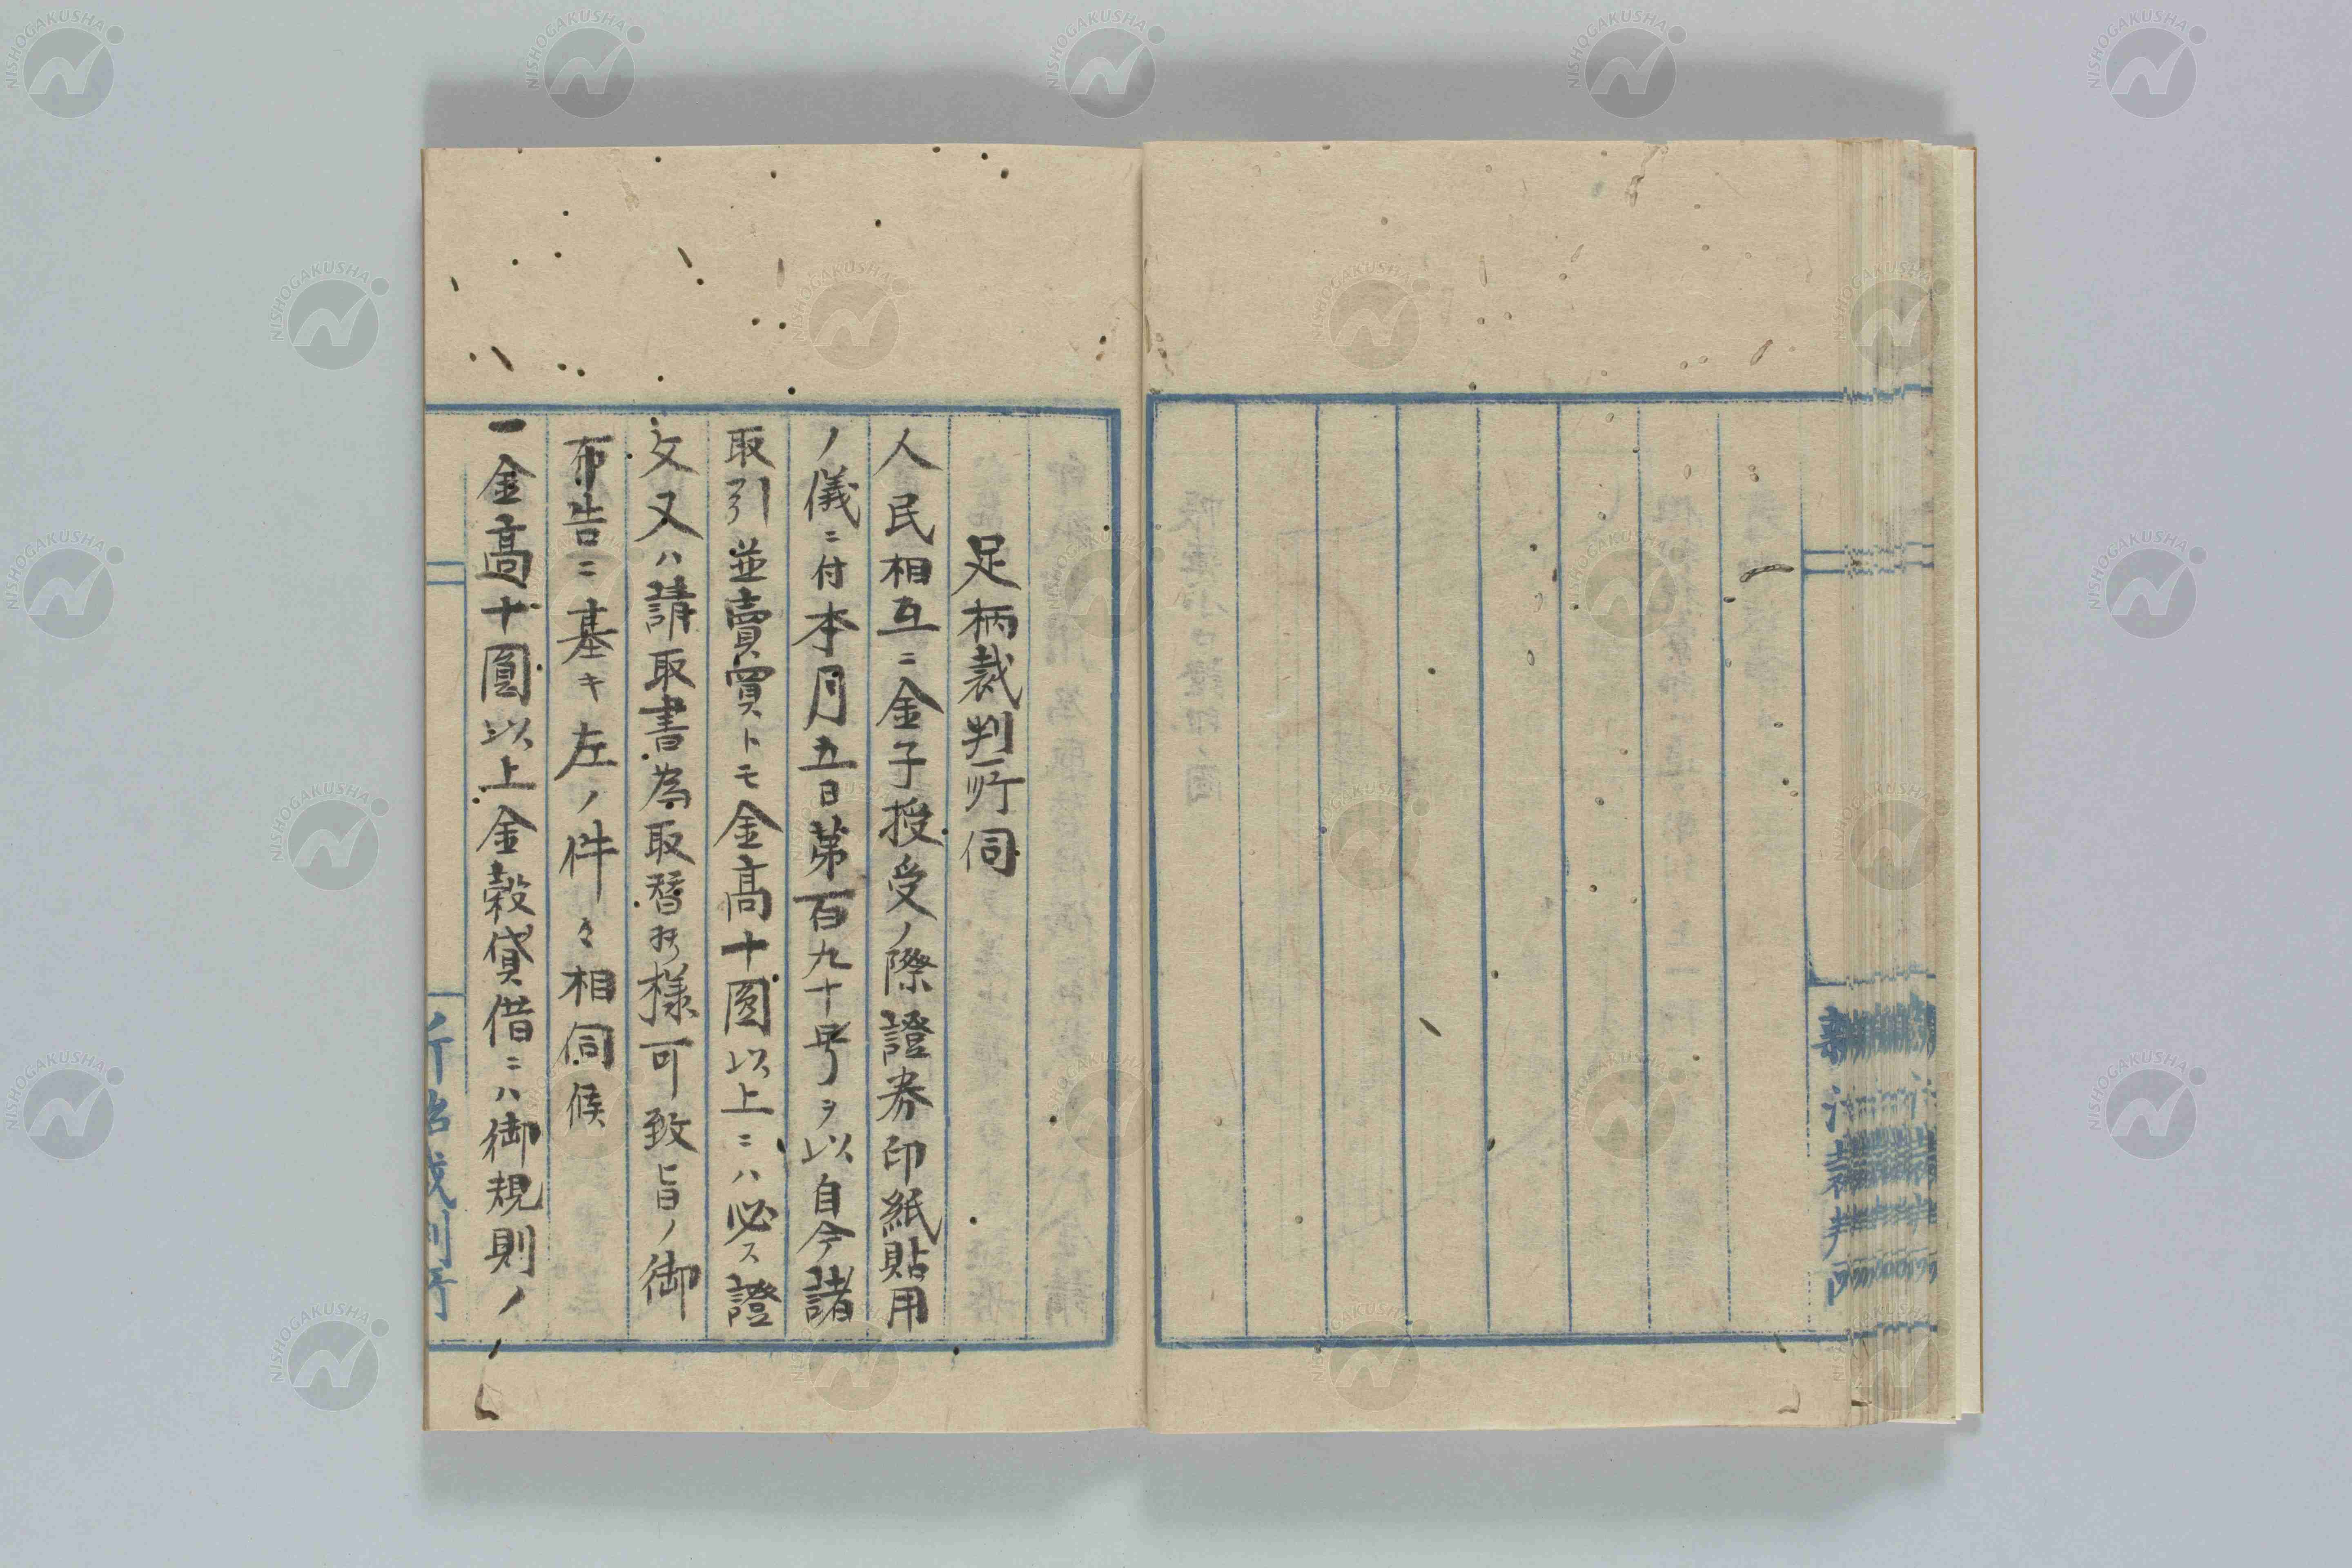 足柄裁判所伺
人民相互ニ金子授受ノ際證券印紙貼用
ノ儀ニ付本月五日第百九十号ヲ以自今諸
取引並賣買トモ金高十圓以上ニハ必ス證
文又ハ請取書為取替候様可致旨ノ御
布告ニ基キ左ノ件々相伺候
一金高十圓以上金穀貸借ニハ御規則ノ
新治裁判所
NISHOGAKUSHA